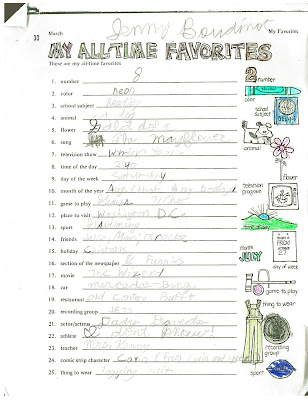 30
March
Jenny Boudinot
My Favorites
MY ALL-TIME FAVORITES
These are my all-time favorites
1. number 8
2. color neon
3. school subject Reading
4. animal dog
5. flower
6. song The Mayflower
7. television show
8. time of the day 3:40
9. day of the week Saturday
10. month of the year
11. game to play
12. place to visit Washington D.C.
13. sport Swimming
14. friends
15. holiday Christmas
16. section of the newspaper Funnies
17. movie The Wizard
18. car
19. restaurant Old Contry Bufft
20. recording group JETS
21. actor/actress
22. athlete
23. teacher
24. comic strip character
25. thing to wear Jogging suit
2 number
color
school subject
animal
flower
television program
time of day
month
JULY
FRIDAY
27
day of week
game to play
thing to wear
recording group
sport